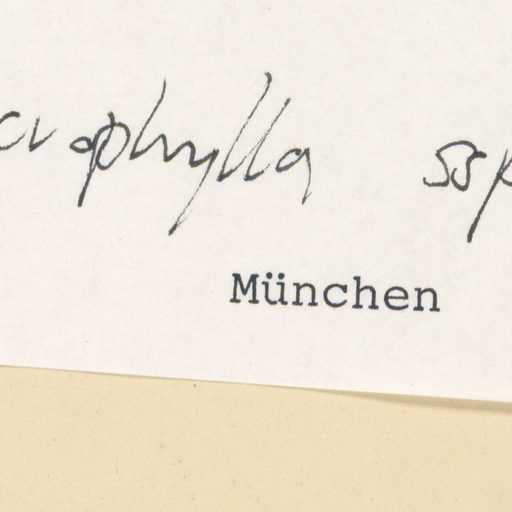 crophylla ssp
München